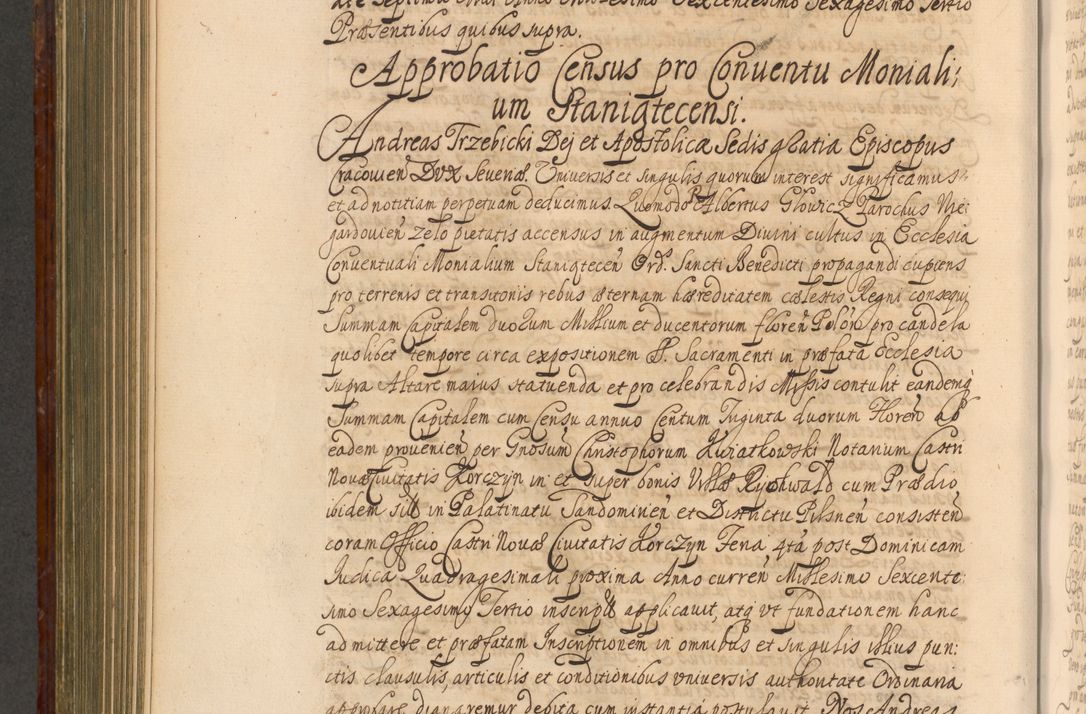 Præsentibus quibus supra.
Approbatio Census pro Conuentu Moniali:
um Staniątecensi.
Andreas Trzebicki Dej et Apostolicæ Sedis gratia Episcopus
Cracouien Dux Seueriæ. Vniuersis et singulis quorum interest significamus
et ad notitiam perpetuam deducimus. Quomodo R Albertus Głowicz Parochus Nie:
gardouien zelo pietatis accensus in augmentum Diuini cultus in Ecclesia
Conuentuali Monialium Staniątecen Ord. Sancti Benedicti propagandi cupiens
pro terrenis et transitoriis rebus æternam hæreditatem cælestis Regni consequi
Summam Capitalem duorum Millium et ducentorum floren Polon pro candela
quolibet tempore circa expositionem SS. Sacramenti in præfata Ecclesia
supra Altare maius statuenda et pro celebrandis Missis contulit eandemq
Summam Capitalem cum Censu annuo Centum Triginta duorum Floren ab
eadem prouenien per Gnosum Christophorum Kwiatkowski Notarium Castri
Nouæ Ciuitatis Korczyn in et super bonis Villæ Rychwałd cum Prædio
ibidem sitis in Palatinatu Sandomirien et Districtu Pilsnen consisten
coram Officio Castri Nouæ Ciuitatis Korczyn Feria 4tâ post Dominicam
Judica Quadragesimali proxima Anno curren Millesimo Sexcente:
simo Sexagesimo Tertio inscriptis applicauit, atq vt fundationem hanc
admittere et præfatam Inscriptionem in omnibus et singulis illius pun:
ctis clausulis, articulis et conditionibus vniuersis authoritate Ordinaria
approbare dignaremur debita cum instantia postulauit. Nos Andreas